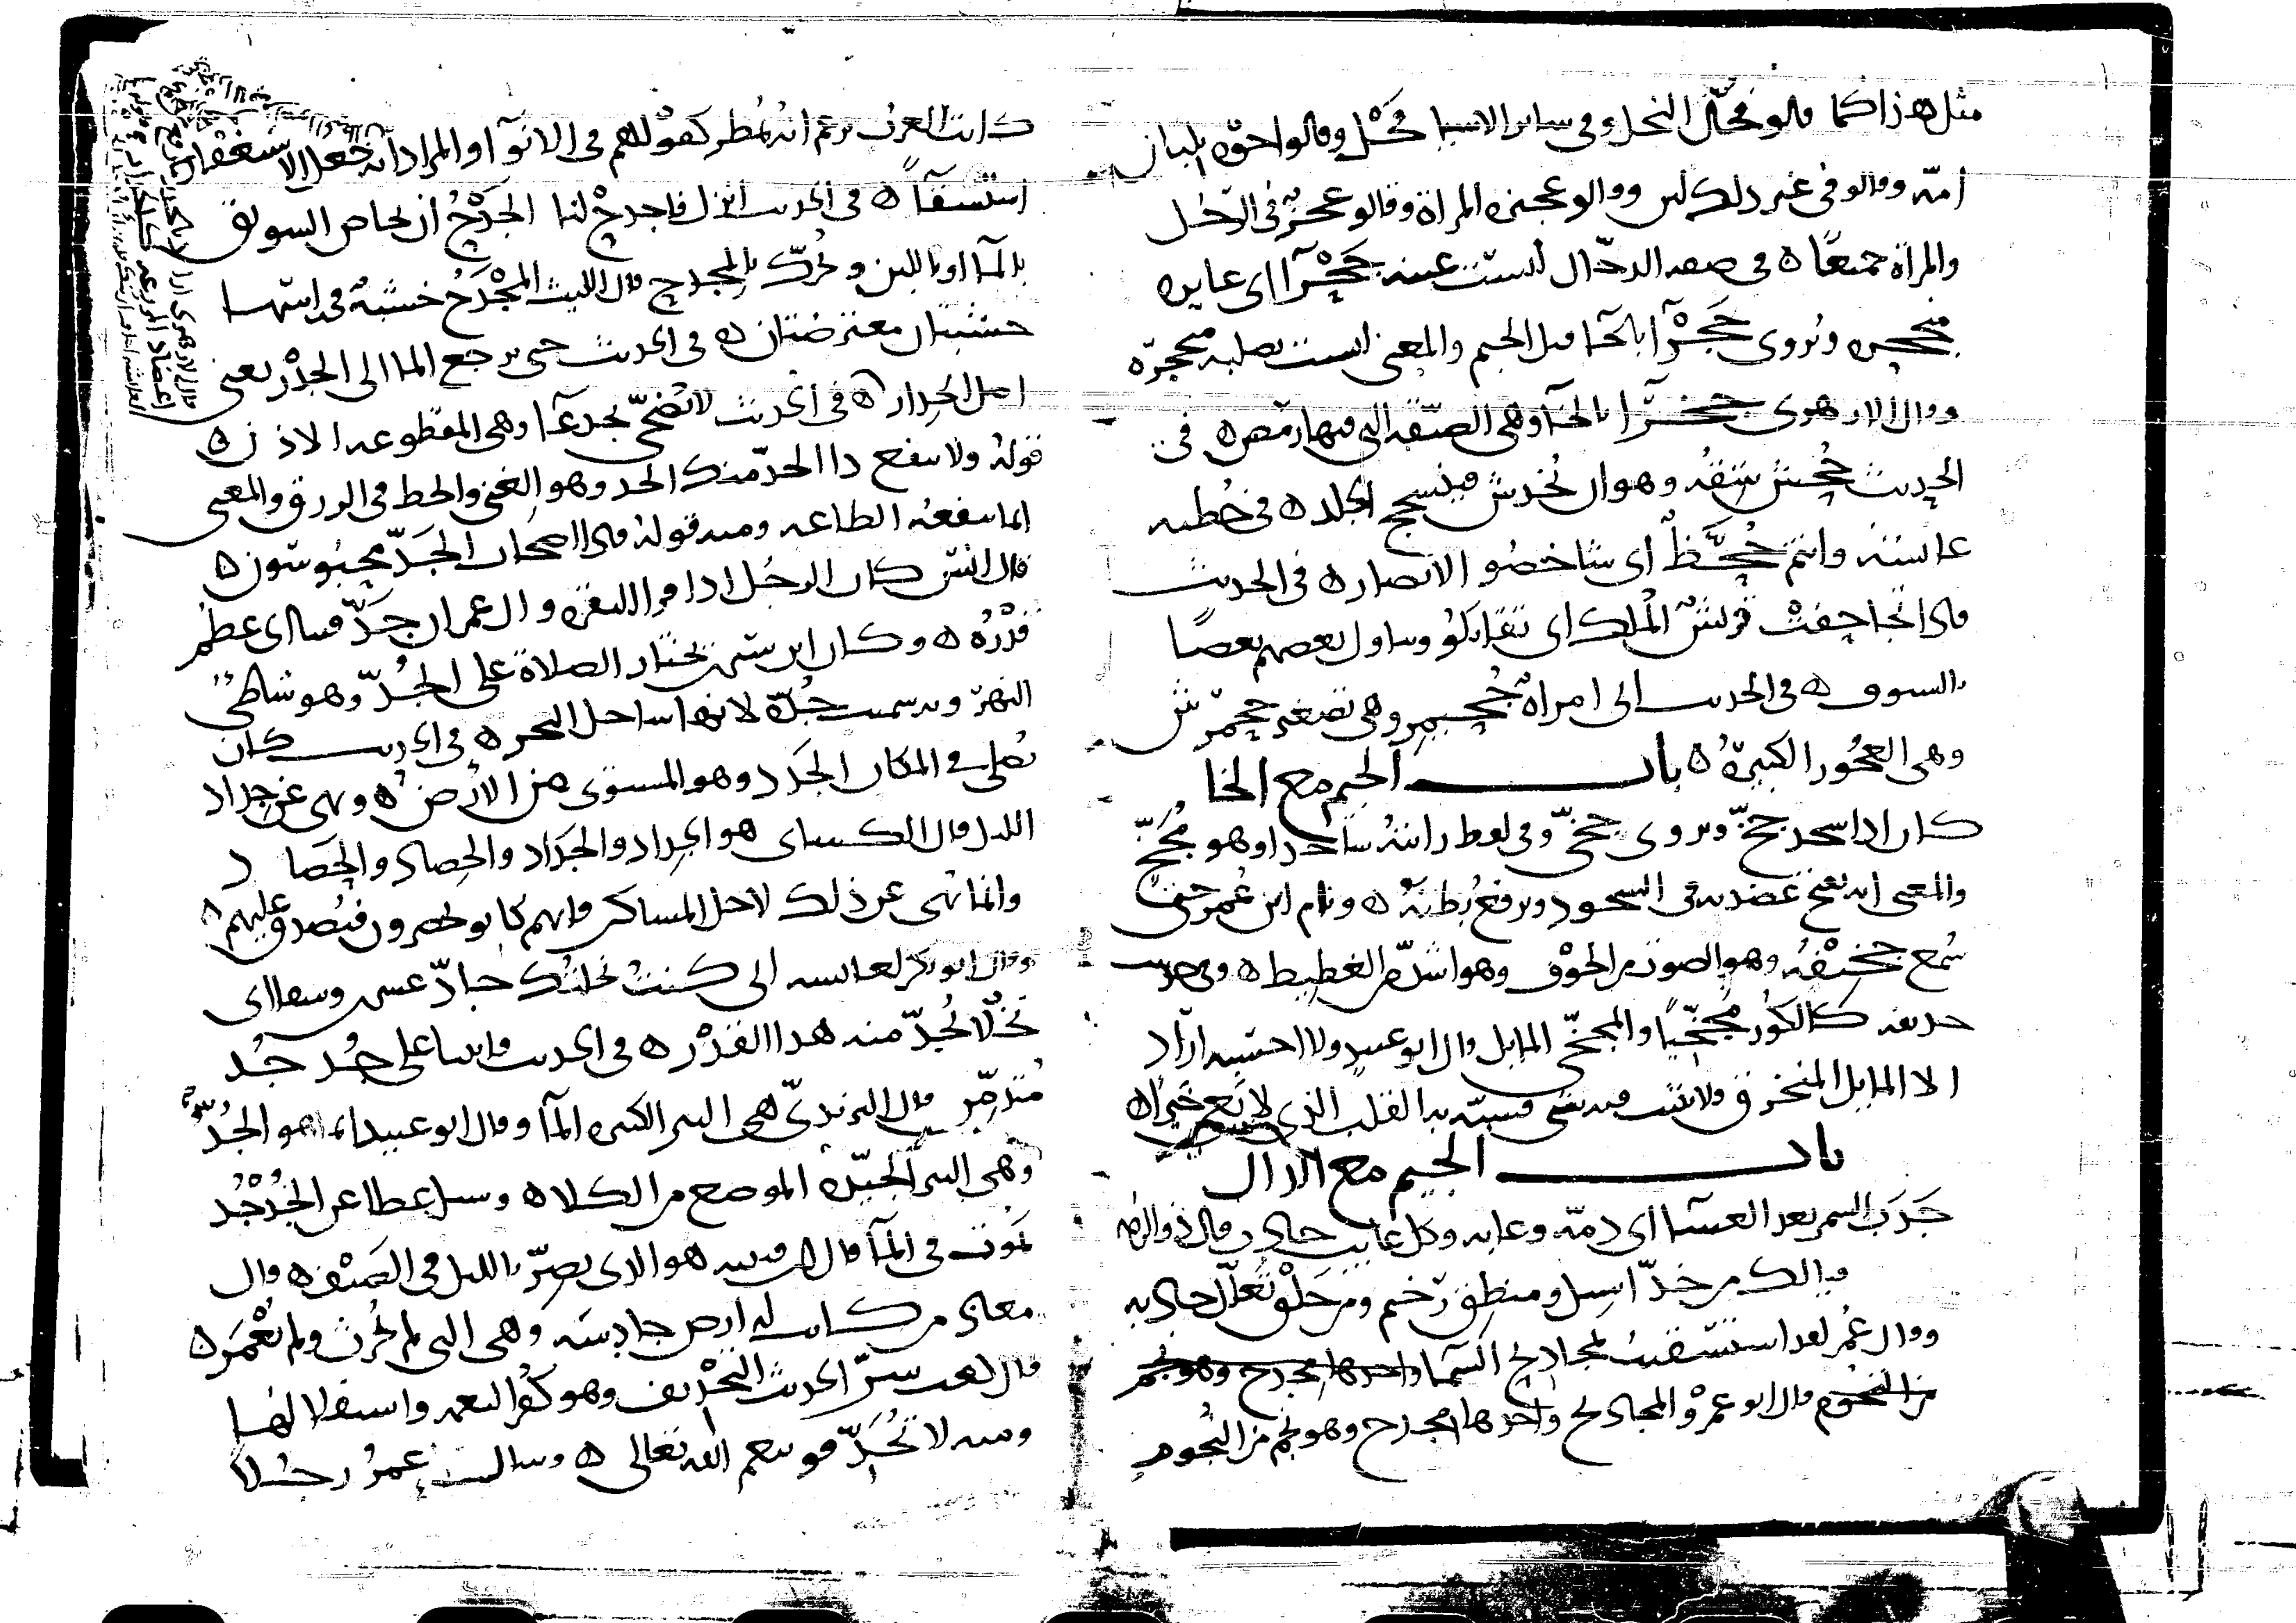 مثل هذا كما قالو فحّال النخل وفي ساير الاشيا فحْل وقالوا اخوه بلبان
امّه وقالو في غير ذلك لبن وقالو عجيزه المراة وقالو عجز في الرّجل
والمراة جميعًا ه في صفه الدجّال ليست عينه جَحْرآ اى غايره
منجحره وتروى حَجْرآ بالحا قبل الجيم والمعنى ليست بصلبه متحجرّه
وقال الازهرى جخرآ بالخآ وهي الضيّقه التي فيها رمَص ه في
الحديث جُحِشَ شِقّه وهو ان يُخدش فينسحج الجلد ه في خطبه
عايشه وانتم جُحَّظٌ اى شاخصو الابصار ه في الحديث
فاذا تجاحفتْ قريشٌ المُلك اى تقاتلو وتناول بعضهم بعضًا
بالسيوف ه في الحديث انى امراةٌ جُحيمِر وهي تصغير جحمرش
وهي العجُوز الكبيرة ه باب الجيم مع الخا
كان اذا سجد جخّ ويروى جخّى وفي لفظ راتته ساجدا وهو مُجَخٍّ
والمعنى انه يفتح عضديه في السجود ويرفع بطنه ه ونام ابن عُمر حتى
سُمع جخيفُه وهو الصوت من الجوْف وهو اشدّ من الغطيط ه وفي حديث
حذيفه كالكوز مُجَخّيًا والمجخّى المايل قال ابو عبيد ولا احسبه اراد
الا المايل المنخرق ولا يثبت فيه شي فشبّه به القلب الذى لا يَعى خيرًا ه
باب الجيم مع الدال
جَدَبَ السمر بعد العشا اى ذمّه وعابه وكل عايب جادب قال ذو الرمه
فيا لك من خدّ اسيل ومنطق رَخيم ومن خَلْق تعلّل جادبه
وقال عُمر لقد استسقيتُ بمجاديح السّما واحدها مجدح وهو نجم
من النجوم قال ابو عمرْو المجاديح واحدها مجدح وهو نجم من النجوم
كانت العرب تزعم انه يُمطر كقوْلهم في الانوآ والمراد انه جعل الاستغفار
استسقآً ه في الحديث انزل فاجدحْ لنا الجَدْحُ ان يخاض السويق
بالمآ او باللبن ويُحرّك بالمِجدح قال الليث المِجْدَحُ خشبهٌ في راسها
خشبتان معترضتان ه في الحديث حتى يرجع الما الى الجَدْر يعنى
اصل الجدار ه في الحديث لا تضحّى بجدعآ وهي المقطوعه الاذن ه
قولهُ ولا ينفع ذا الجدّ منك الجد وهو الغنى والحظ في الرزق والمعنى
انما ينفعه الطاعه ومنه قولهُ فاذا اصحاب الجَدّ محبُوسُون ه
قال انس كان الرجُل اذا قرا البقره وال عمران جَدّ فينا اى عظم
قَدْرُه ه وكان ابن سيرين يختار الصلاة على الجُدّ وهو شاطى
النهر وبه سميت جُدّه لانها ساحل البحر ه في الحديث كان
يُصلى في المكان الجَدَد وهو المستوى من الارض ه ونهى عن جداد
الليل قال الكساى هو الجِداد والجَدَاد والحِصاد والحَصاد
وانما نهى عن ذلك لاجل المساكين فانهم كانو يحضرون فيُصدق عليهم ه
وقال ابو بكر لعايشه انى كنتُ نحلتُك جادّ عشرين وسقا اى
نخلًا يُجدّ منه هذا القدْر ه في الحديث فاتينا على جُدجُد
مُتدمّن قال اليزيدىّ هي البير الكثيره المآ وقال ابو عبيد انما هو الجُدّ
وهي البير الجيّدة الموضع من الكلا ه وسيل عطا عن الجُدْجُد
يموت في المآ قال القتيبى هو الذى يصِرّ بالليل في الصَيْف ه وقال
معاذ من كانت له ارض جادِسَه وهي التي لم تُحرث ولم تُعْمَر ه
قال كعب شرّ الحديث التَجْديف وهو كُفْر النعمه واستقلالها
ومنه لا تُجدّفو بنعم الله تعالى ه وسالت عمرُ رجُلا
قال الازهرى